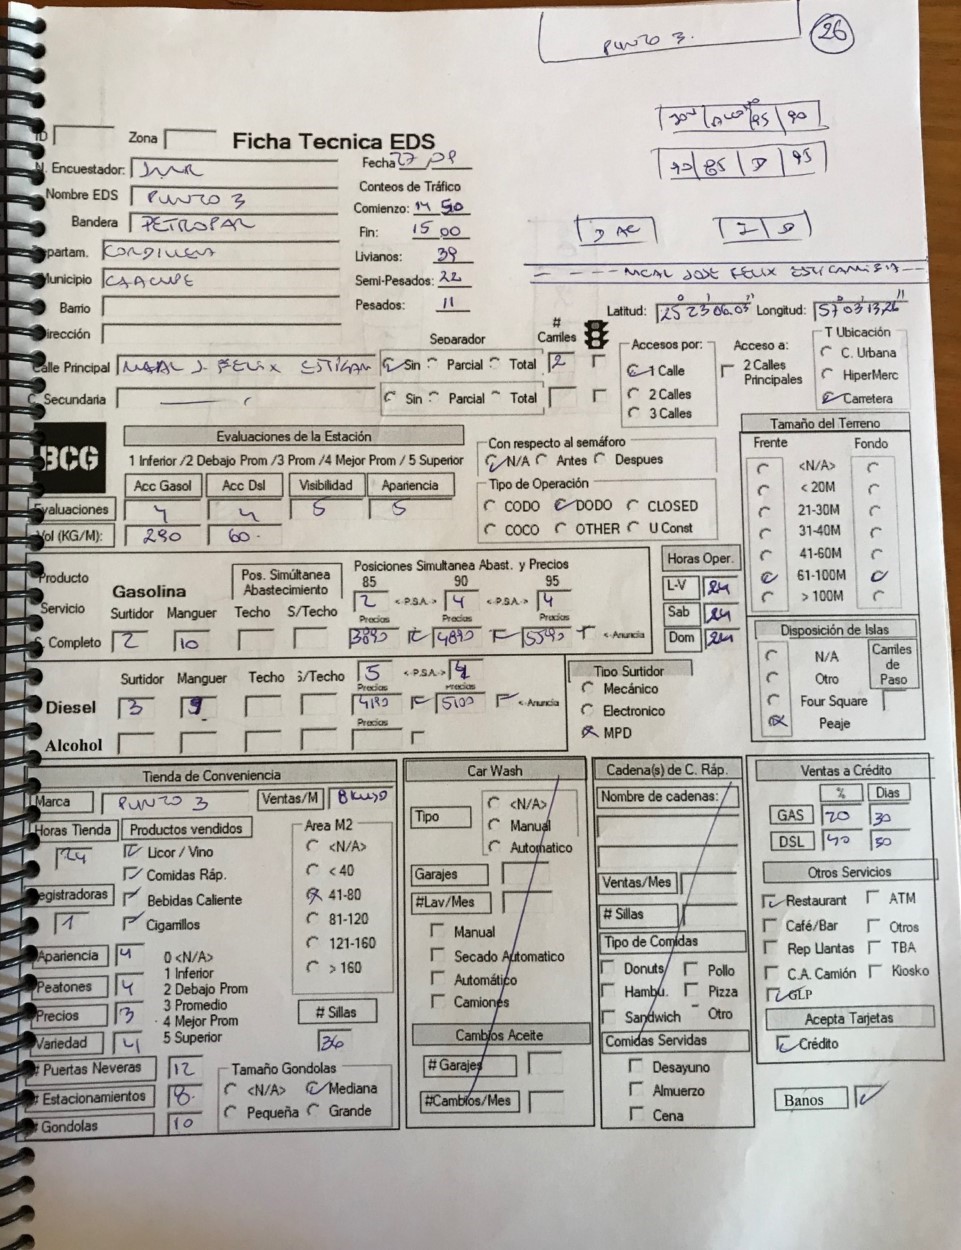 PUNTO 3.
26
90 | 85 | D | 95
ID Zona Ficha Tecnica EDS
N. Encuestador: JMR Fecha 27/09
Conteos de Tráfico
Nombre EDS PUNTO 3 Comienzo: 14 50
Bandera PETROPAR Fin: 15 00
Departam. CORDILLERA Livianos: 39
Municipio CAACUPE Semi-Pesados: 22
Barrio Pesados: 11
MCAL JOSE FELIX ESTIGARRIBIA
Dirección Latitud: Longitud:
Separador # Carriles Accesos por: Acceso a: T Ubicación
Calle Principal MCAL J. FELIX ESTIGAR Sin Parcial Total 2 1 Calle 2 Calles Principales C. Urbana
C. Secundaria Sin Parcial Total 2 Calles HiperMerc
3 Calles Carretera
BCG Evaluaciones de la Estación Con respecto al semáforo Tamaño del Terreno
1 Inferior /2 Debajo Prom /3 Prom /4 Mejor Prom / 5 Superior N/A Antes Despues Frente Fondo
Acc Gasol Acc Dsl Visibilidad Apariencia Tipo de Operación <N/A>
Evaluaciones 4 4 5 5 CODO DODO CLOSED < 20M
Vol (KG/M): 290 60. COCO OTHER U Const 21-30M
31-40M
41-60M
61-100M
> 100M
Producto Gasolina Pos. Simúltanea Abastecimiento Posiciones Simultanea Abast. y Precios Horas Oper.
85 90 95 L-V 24
Servicio Surtidor Manguer Techo S/Techo 2 <-P.S.A.-> 4 <-P.S.A.-> 4 Sab 24
Precios Precios Precios Dom 24
S. Completo 2 10 3890 4890 5590 <-Anuncia
Disposición de Islas
N/A Carriles de Paso
Otro
Four Square
Peaje
Surtidor Manguer Techo S/Techo 5 <-P.S.A.-> 4 Tipo Surtidor
Precios Precios Mecánico
Diesel 3 9 4190 5100 <-Anuncia Electronico
Precios MPD
Alcohol
Tienda de Conveniencia
Marca PUNTO 3 Ventas/M
Horas Tienda Productos vendidos Area M2
24 Licor / Vino <N/A>
Comidas Ráp. < 40
Registradoras Bebidas Caliente 41-80
1 Cigarrillos 81-120
121-160
> 160
Apariencia 4 0 <N/A>
1 Inferior
Peatones 4 2 Debajo Prom
Precios 3 3 Promedio # Sillas
4 Mejor Prom
Variedad 4 5 Superior 36
# Puertas Neveras 12 Tamaño Gondolas
# Estacionamientos 8. <N/A> Mediana
# Gondolas 10 Pequeña Grande
Car Wash
Tipo <N/A>
Manual
Automatico
Garajes
#Lav/Mes
Manual
Secado Automatico
Automático
Camiones
Cambios Aceite
# Garajes
#Cambios/Mes
Cadena(s) de C. Ráp.
Nombre de cadenas:
Ventas/Mes
# Sillas
Tipo de Comidas
Donuts Pollo
Hambu. Pizza
Sandwich Otro
Comidas Servidas
Desayuno
Almuerzo
Cena
Ventas a Crédito
% Dias
GAS 20 30
DSL
Otros Servicios
Restaurant ATM
Café/Bar Otros
Rep Llantas TBA
C.A. Camión Kiosko
GLP
Acepta Tarjetas
Crédito
Banos